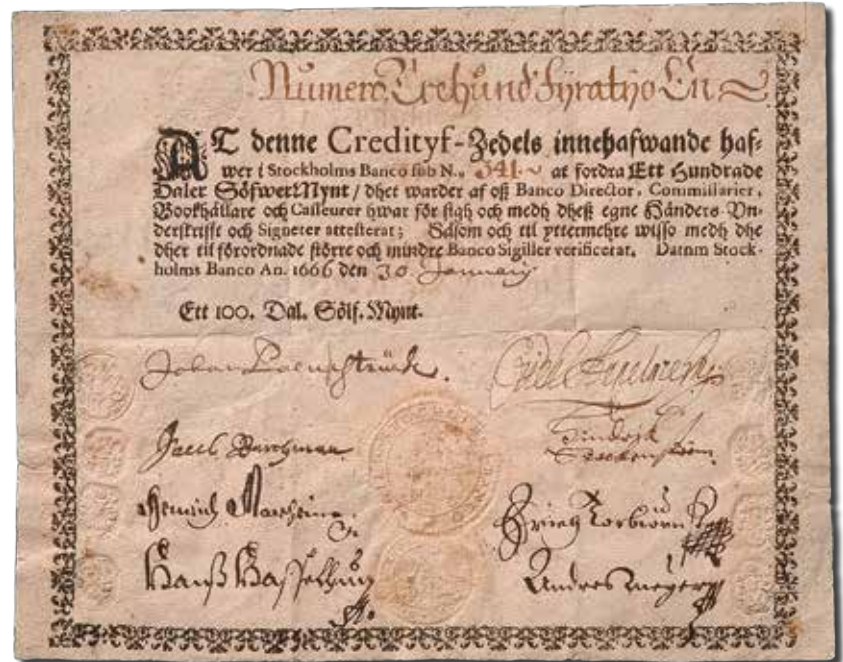 Numero Trehund Fyratyo En
AT denne Credityf-Zedels innehafwande haf-
wer i Stockholms Banco sub N.o 341 at fordra Ett Hundrade
Daler SölfwerMynt / dhet warder af oß Banco Director, Commissarier,
Bookhållare och Casseurer hwar för sigh och medh dheß egne Händers Vn-
derskrifft och Signeter attesterat; Såsom och til yttermehre wisso medh dhe
dher til förordnade större och mindre Banco Sigiller verificerat. Datum Stock-
holms Banco An. 1666 den 30 January
Ett 100. Dal. Sölf. Mynt.
Johan
Jacob
Hindrich
Henrich
Hanß
Andres Meyer